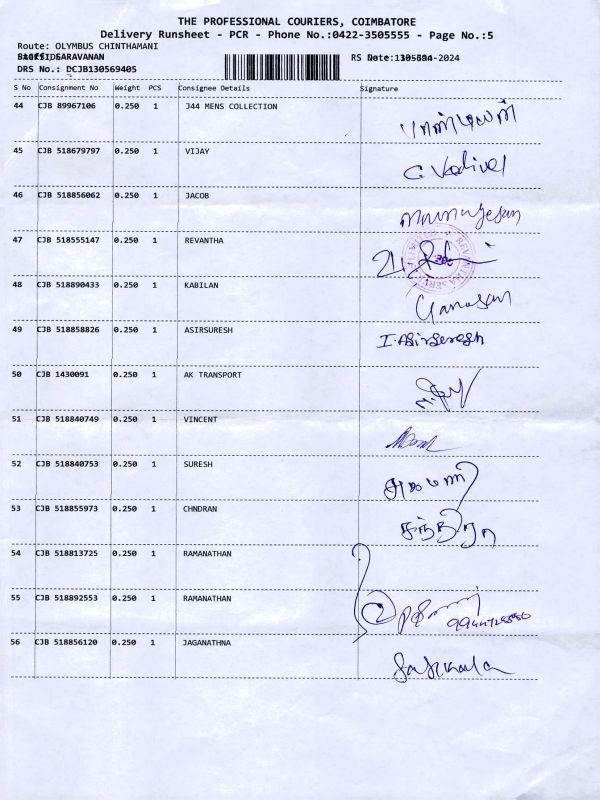 THE PROFESSIONAL COURIERS, COIMBATORE
Delivery Runsheet - PCR - Phone No.:0422-3505555 - Page No.:5
Route: OLYMBUS CHINTHAMANI
SARAVANAN
RS Date: -2024
DRS No.: DCJB130569405
S No Consignment No Weight PCS Consignee Details Signature
44 CJB 89967106 0.250 1 J44 MENS COLLECTION
45 CJB 518679797 0.250 1 VIJAY G Vadivel
46 CJB 518856062 0.250 1 JACOB
47 CJB 518555147 0.250 1 REVANTHA
48 CJB 518890433 0.250 1 KABILAN
49 CJB 518858826 0.250 1 ASIRSURESH I. Asirsuresh
50 CJB 1430091 0.250 1 AK TRANSPORT
51 CJB 518840749 0.250 1 VINCENT
52 CJB 518840753 0.250 1 SURESH
53 CJB 518855973 0.250 1 CHNDRAN சந்திரா
54 CJB 518813725 0.250 1 RAMANATHAN
55 CJB 518892553 0.250 1 RAMANATHAN
56 CJB 518856120 0.250 1 JAGANATHNA Sasikala